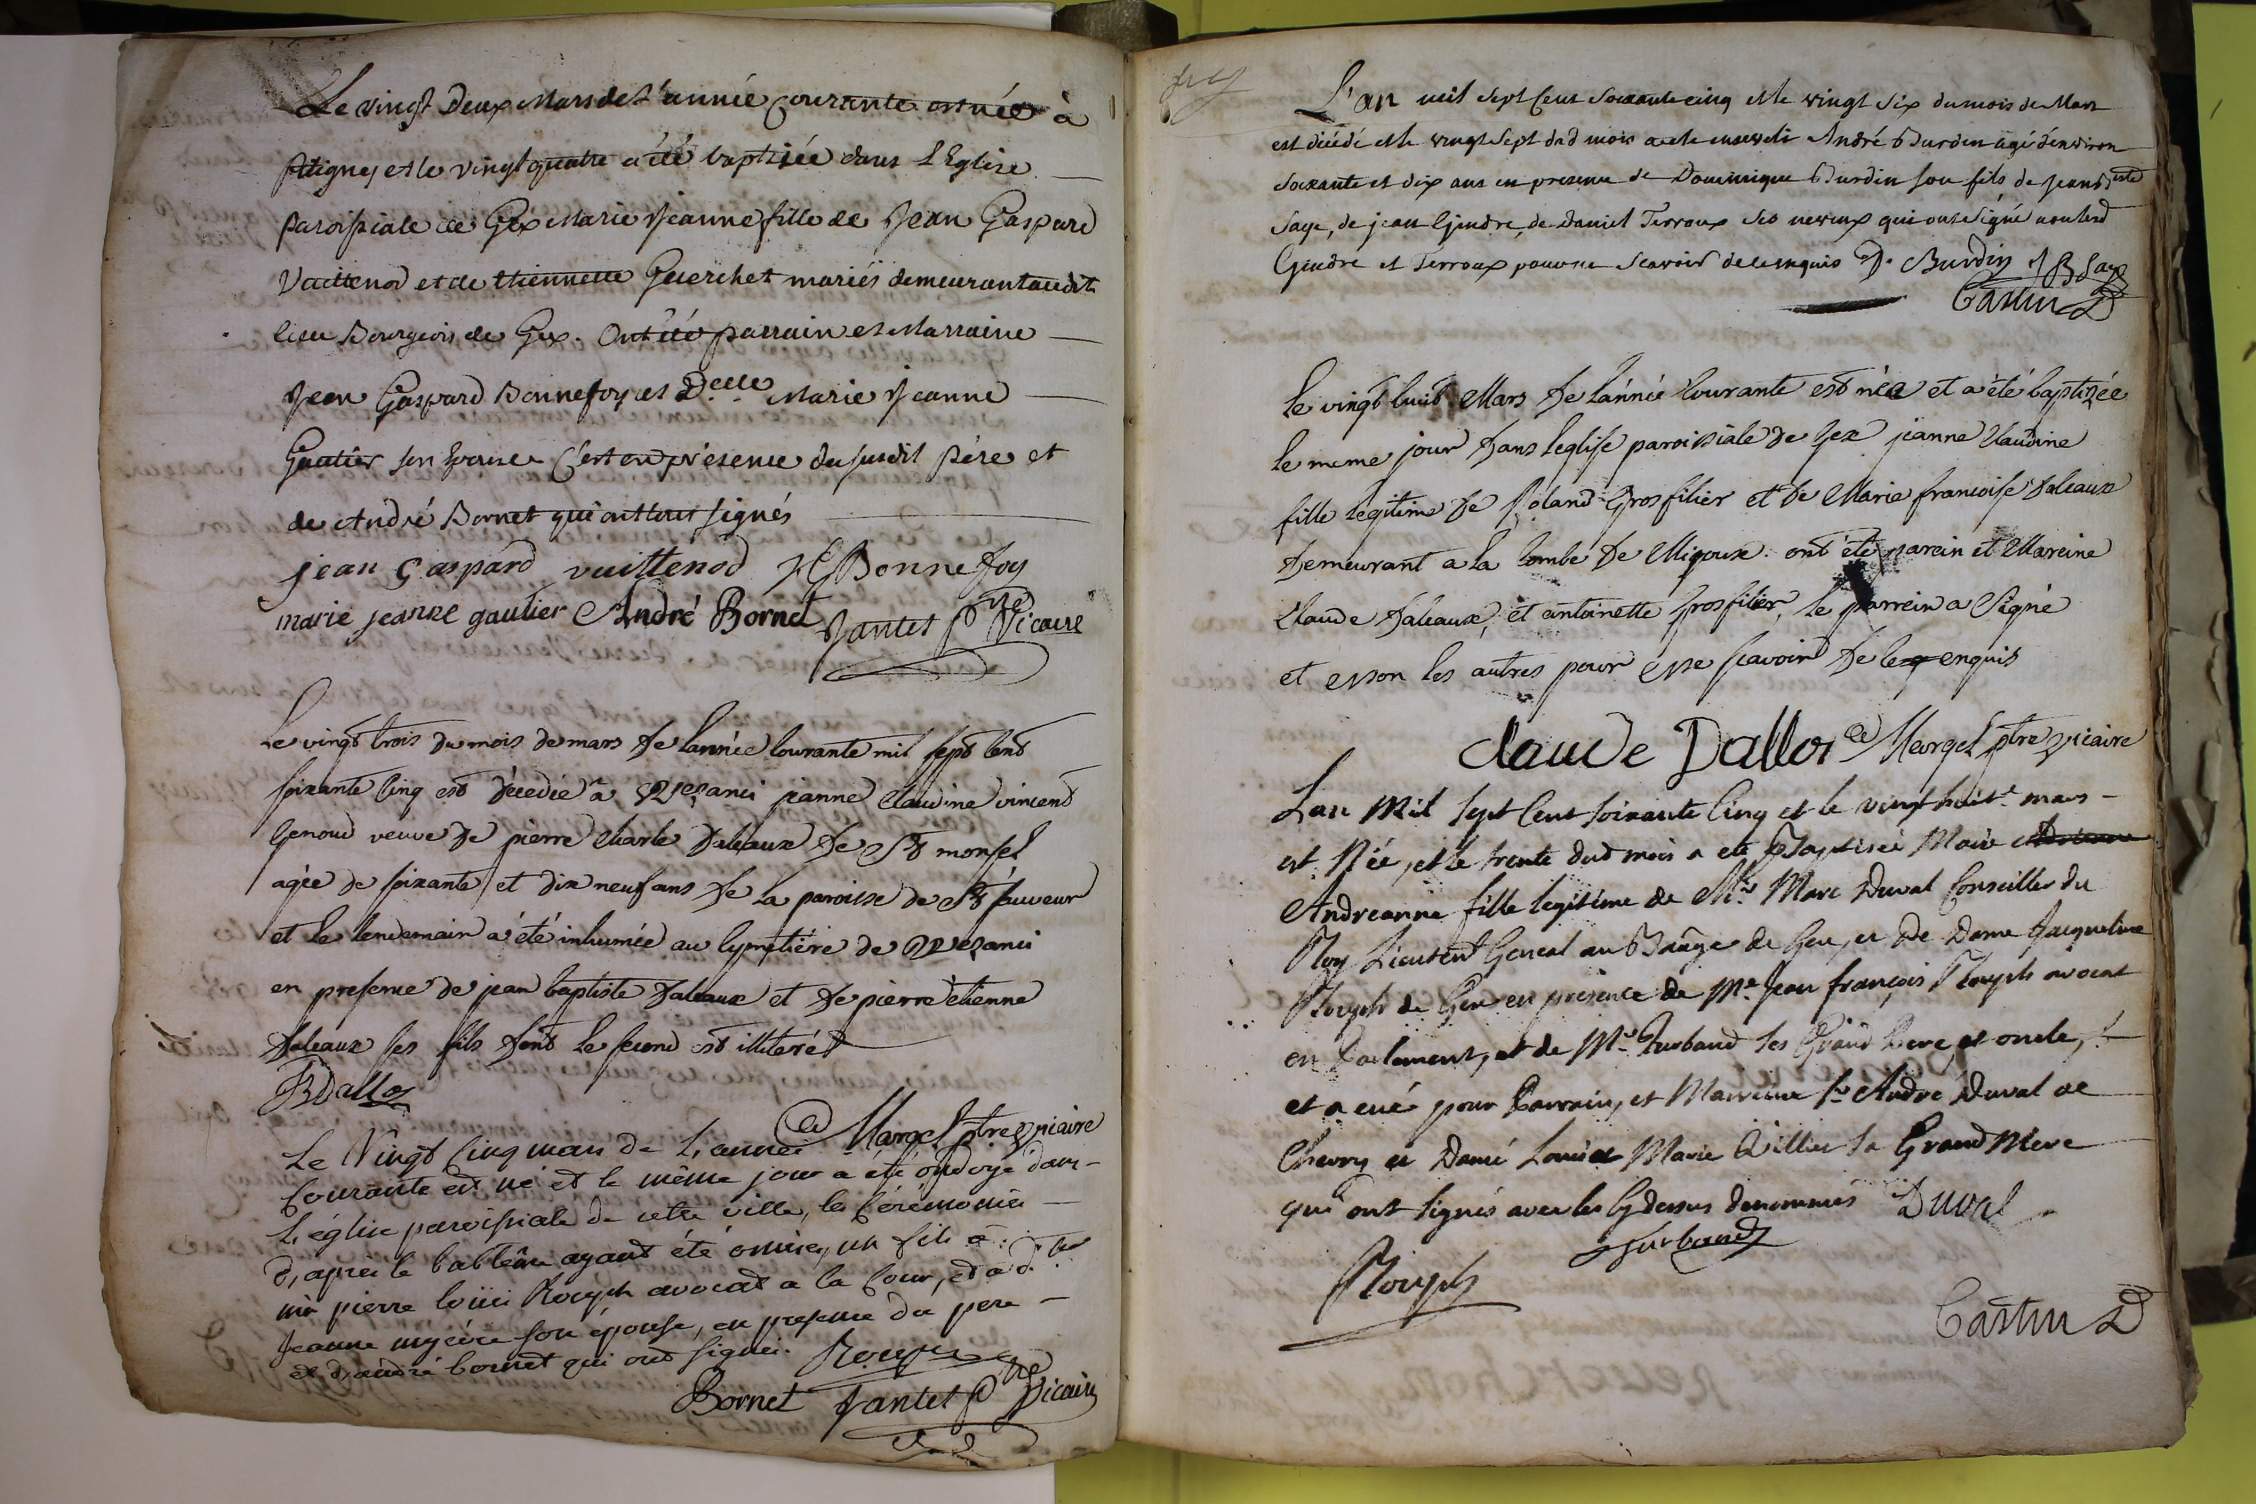 Le vingt Deux Mars de l'année Courante est née à
et le vingt quatre a été baptisée dans L'Eglise
paroissiale de Gex Marie Jeanne fille de Jean Gaspard
Vuittenod et de Etiennette Guerchet mariés demeurant audit
lieu Bourgeois de Gex. Ont été parrain et Marraine
Jean Gaspard Bonnefoy et D.elle Marie Jeanne
Gautier son Epouse C'est en présence du susdit Père et
de André Bornet qui ont tous signés
jean gaspard vuittenod JG Bonnefoy
marie jeanne gautier André Bornet Jantet ptre Vicaire
Le vingt trois du mois de mars de l'année courante mil sept cent
soixante cinq est décédée à Vesanci jeanne Claudine vincent
Genoud veuve de pierre charle Daleaux de St monsel
agée de soixante et dix neuf ans de la paroisse de St sauveur
et le lendemain a été inhumée au cymetiére de Vesanci
en presence de jean baptiste Daleaux et de pierre étienne
Daleaux ses fils dont le second est illiteré
Dalloz
Margel ptre vicaire
Le Vingt Cinq mars de L'année
Courante est né et le même jour a été ondoyé dans
L'église paroissiale de cette ville, les Cérémonies
d'après le batême ayant été omises, un fils à
mr pierre louis Rouph avocat a la Cour, et à d.
Jeanne son épouse, en presence du pere
et d'andré bornet qui ont signés. Rouph
Bornet Jantet ptre Vicaire
L'an mil sept Cent soixante cinq et le vingt six du mois de Mars
est décédé et le vingt sept dud mois a été enseveli André Burdin agé d'environ
soixante et dix ans en presence de Dominique Burdin son fils de Jean Bste
Saye, de jean Gindre, de Daniel Terroux ses neveux qui ont signé non led
Gindre et Terroux pour ne scavoir de ce enquis D. Burdin J B Saye
Castin D
Le vingt huit Mars de l'année courante est née et a été baptizée
le meme jour dans leglise paroissiale de Gex jeanne Claudine
fille legitime de Roland Grosfilier et de Marie francoise Daleaux
demeurant a la Combe de Migoux. ont été parein et Mareine
Claude Daleaux, et antoinette Grosfilier, le parrein a signé
et non les autres pour ne scavoir de ce enquis
claude Dalloz Margel ptre vicaire
Lan Mil sept Cent soixante Cinq et le vingt huit.e mars
est Née, et le trente dud mois a eté Baptisée Marie
Andreanne fille legitime de Mr Marc Duval Conseiller du
Roy Lieutent Géneral au Bailliage de Gex, et de Dame Jacqueline
Rouph de Gex en présence de Me Jean françois Rouph avocat
en Parlement, et de Me Furbaud ses Grand Pere, et oncle,
et a eué pour Parrain, et Marreine Sr André Duval de
Chevry et Dame Louise Marie sa Grand Mere
qui ont signés avec les Cy dessus dénommés Duval
Furbaud
Rouph
Castin D